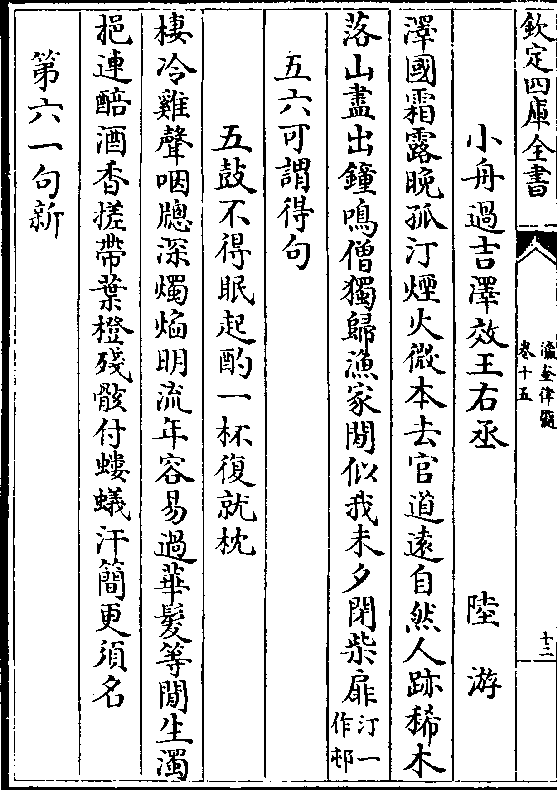 欽定四庫全書
瀛奎律髓
卷十五
十二
小舟過吉澤效王右丞 陸游
澤國霜露晚孤汀煙火微本去官道遠自然人跡稀木
落山盡出鐘鳴僧獨歸漁家閒似我未夕閉柴扉汀一
作邨
五六可謂得句
五鼓不得眠起酌一杯復就枕
棲冷雞聲咽牕深燭焰明流年容易過華髮等閒生濁
挹連醅酒香搓帶葉橙殘骸付螻蟻汗簡更須名
第六一句新